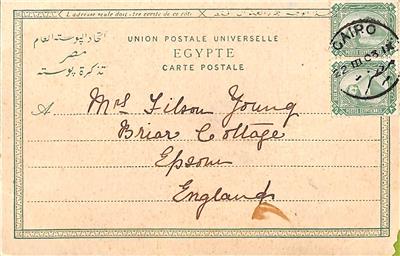 L'adresse seule doit être écrite de ce côté
اتحاد البوسته العام
مصر
تذكرة بوسته
UNION POSTALE UNIVERSELLE
EGYPTE
CARTE POSTALE
CAIRO
A Mrs Filson Young
Briar Cottage
Epsom
England